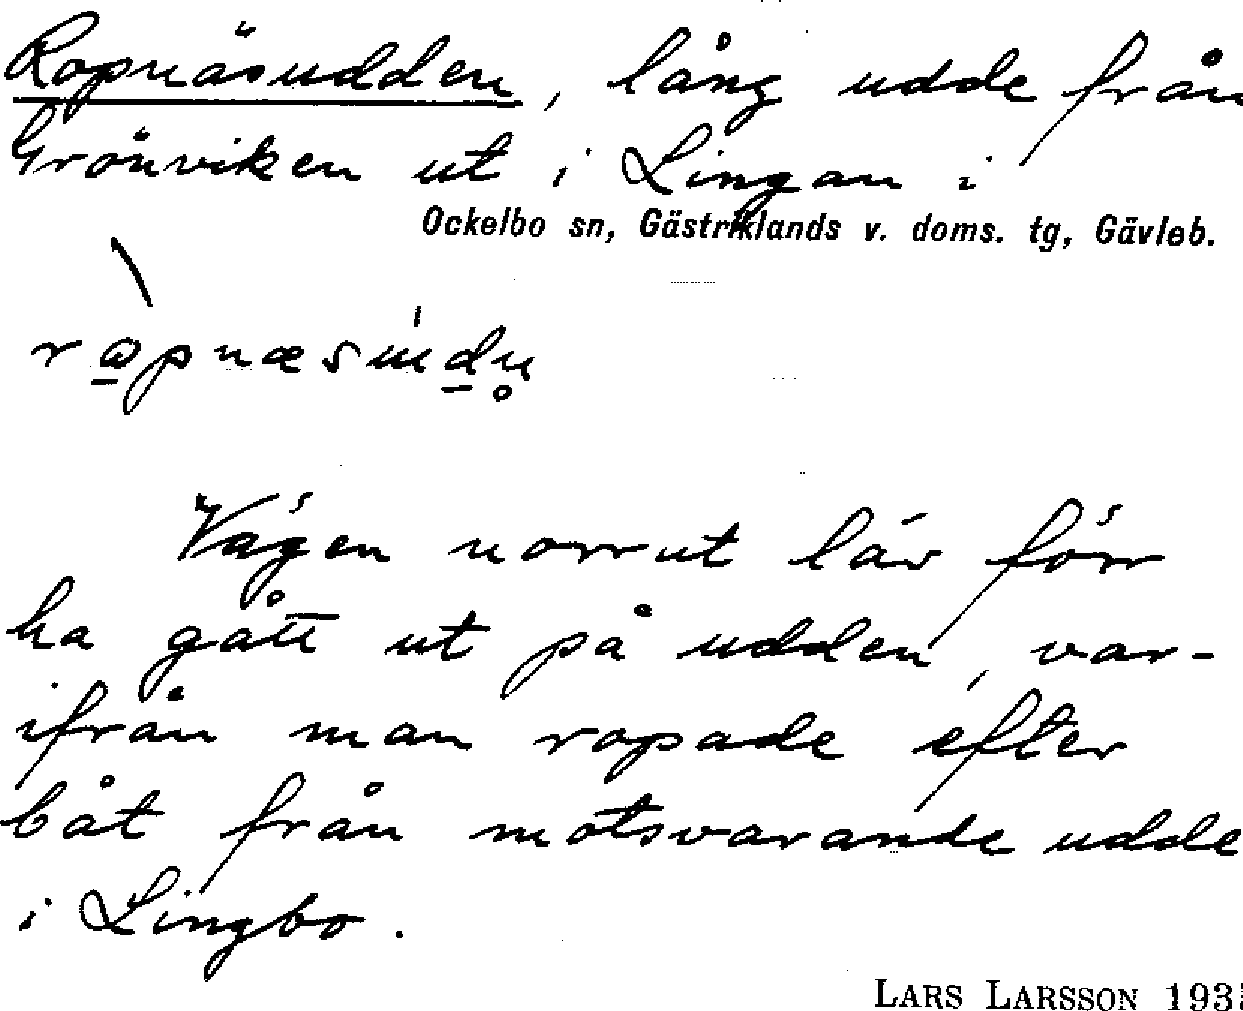 Ropnäsudden, lång udde från
Grönviken ut i Lingan i
Ockelbo sn, Gästriklands v. doms. tg, Gävleb.
Vägen norrut lär förr
ha gått ut på udden, var-
ifrån man ropade efter
båt från motsvarande udde
i Lingbo.
LARS LARSSON